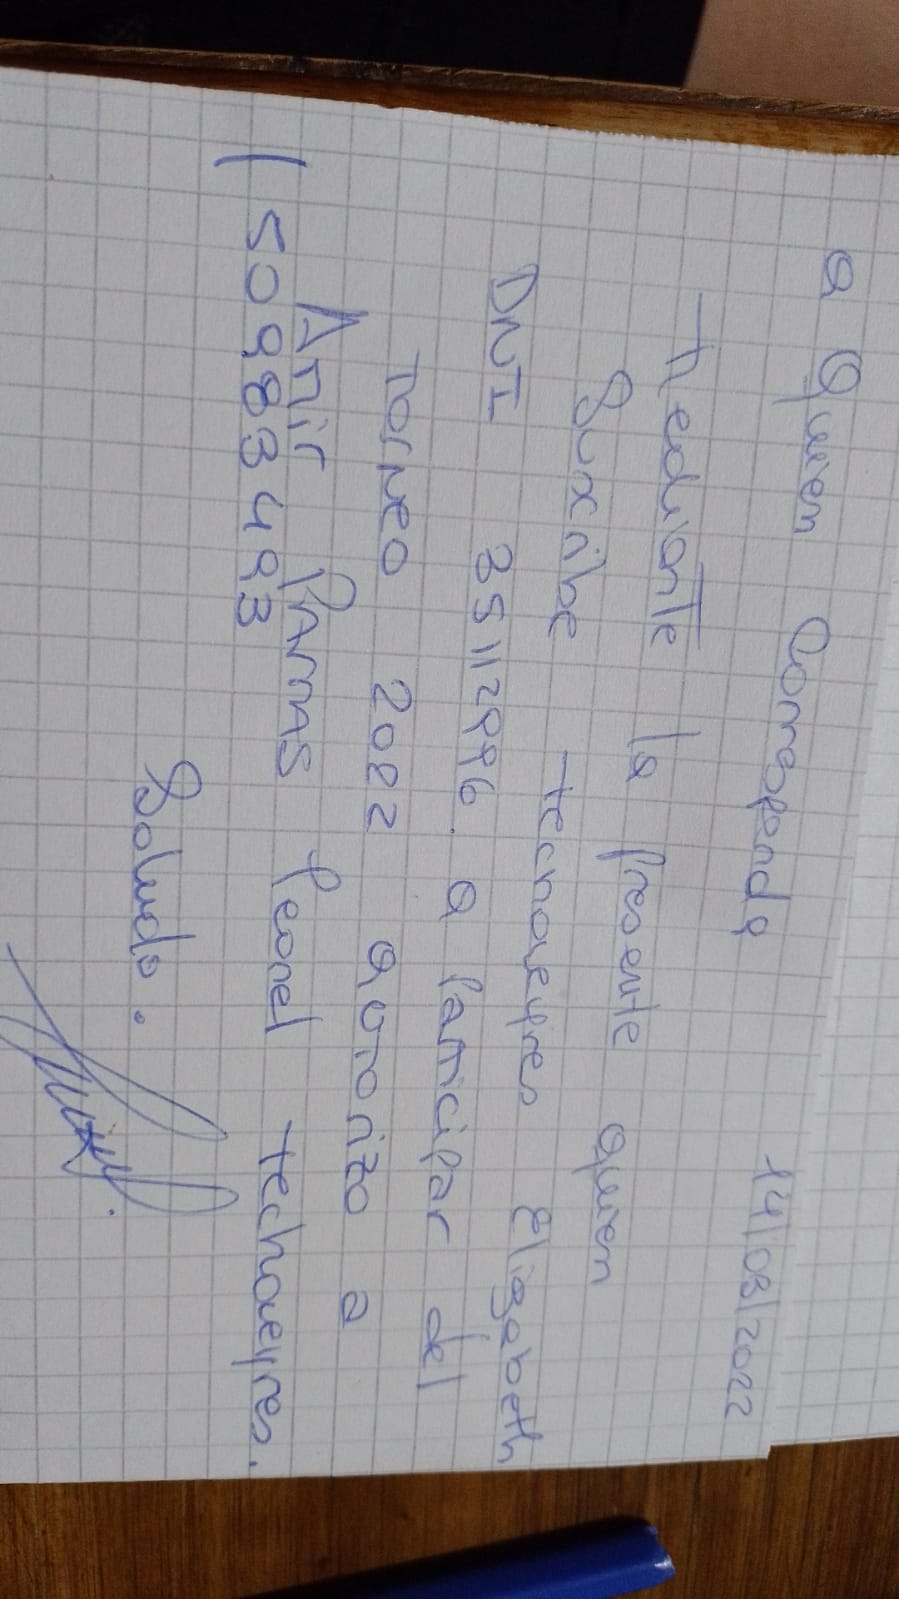 a Quien Corresponda 14/08/2022
Mediante la presente quien
Suscribe Elizabeth
DNI 35112996. a participar del
torneo 2022 autorizo a
Amir Leonel
(50983493
Saludo.